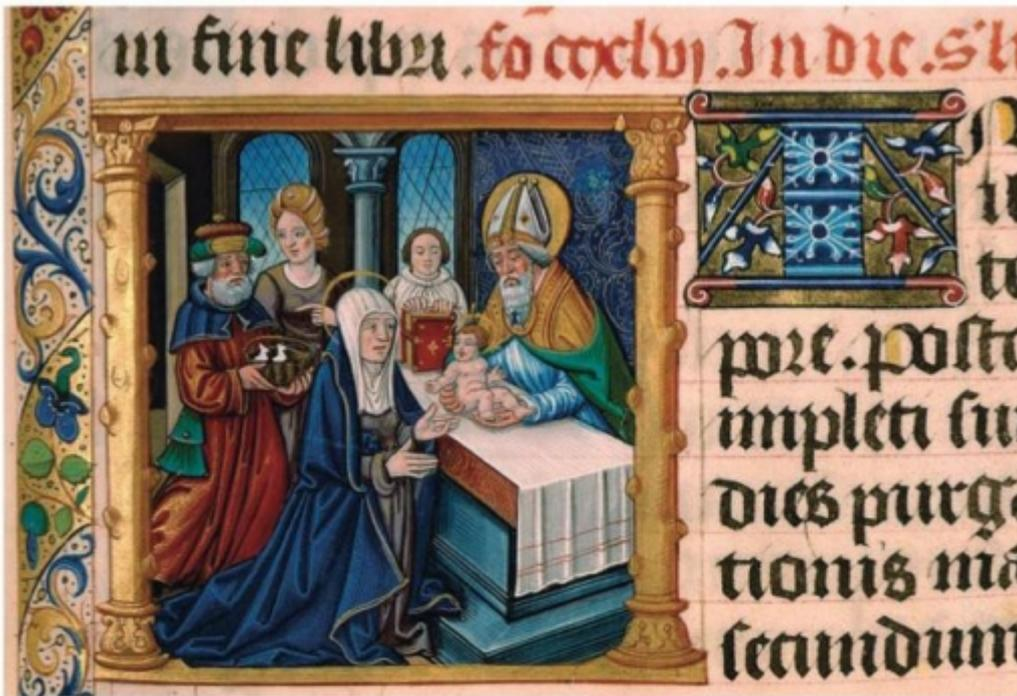 in fine libri .fo ccxlvj. In die.
I N
il
te
pore. post
impleti su
dies purga
tionis ma
secundum